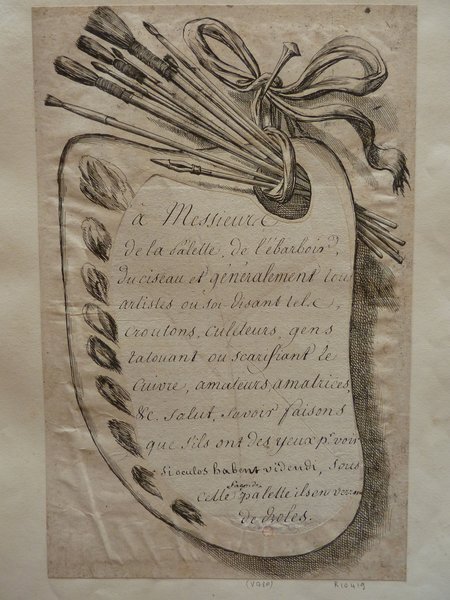 à Messieurs
de la Palette, de l'ébarboir,
du ciseau et généralement tous
artistes ou soi disant tels,
croutons, culdeurs, gens
tatouant ou scarifiant le
Cuivre, amateurs, amatrices,
&c. salut, savoir faisons
que s'ils ont des yeux pr. voir
si oculos habent videndi, sous
façon de
cette palette ils en verront
de drôles.
(VOSA)
R10419